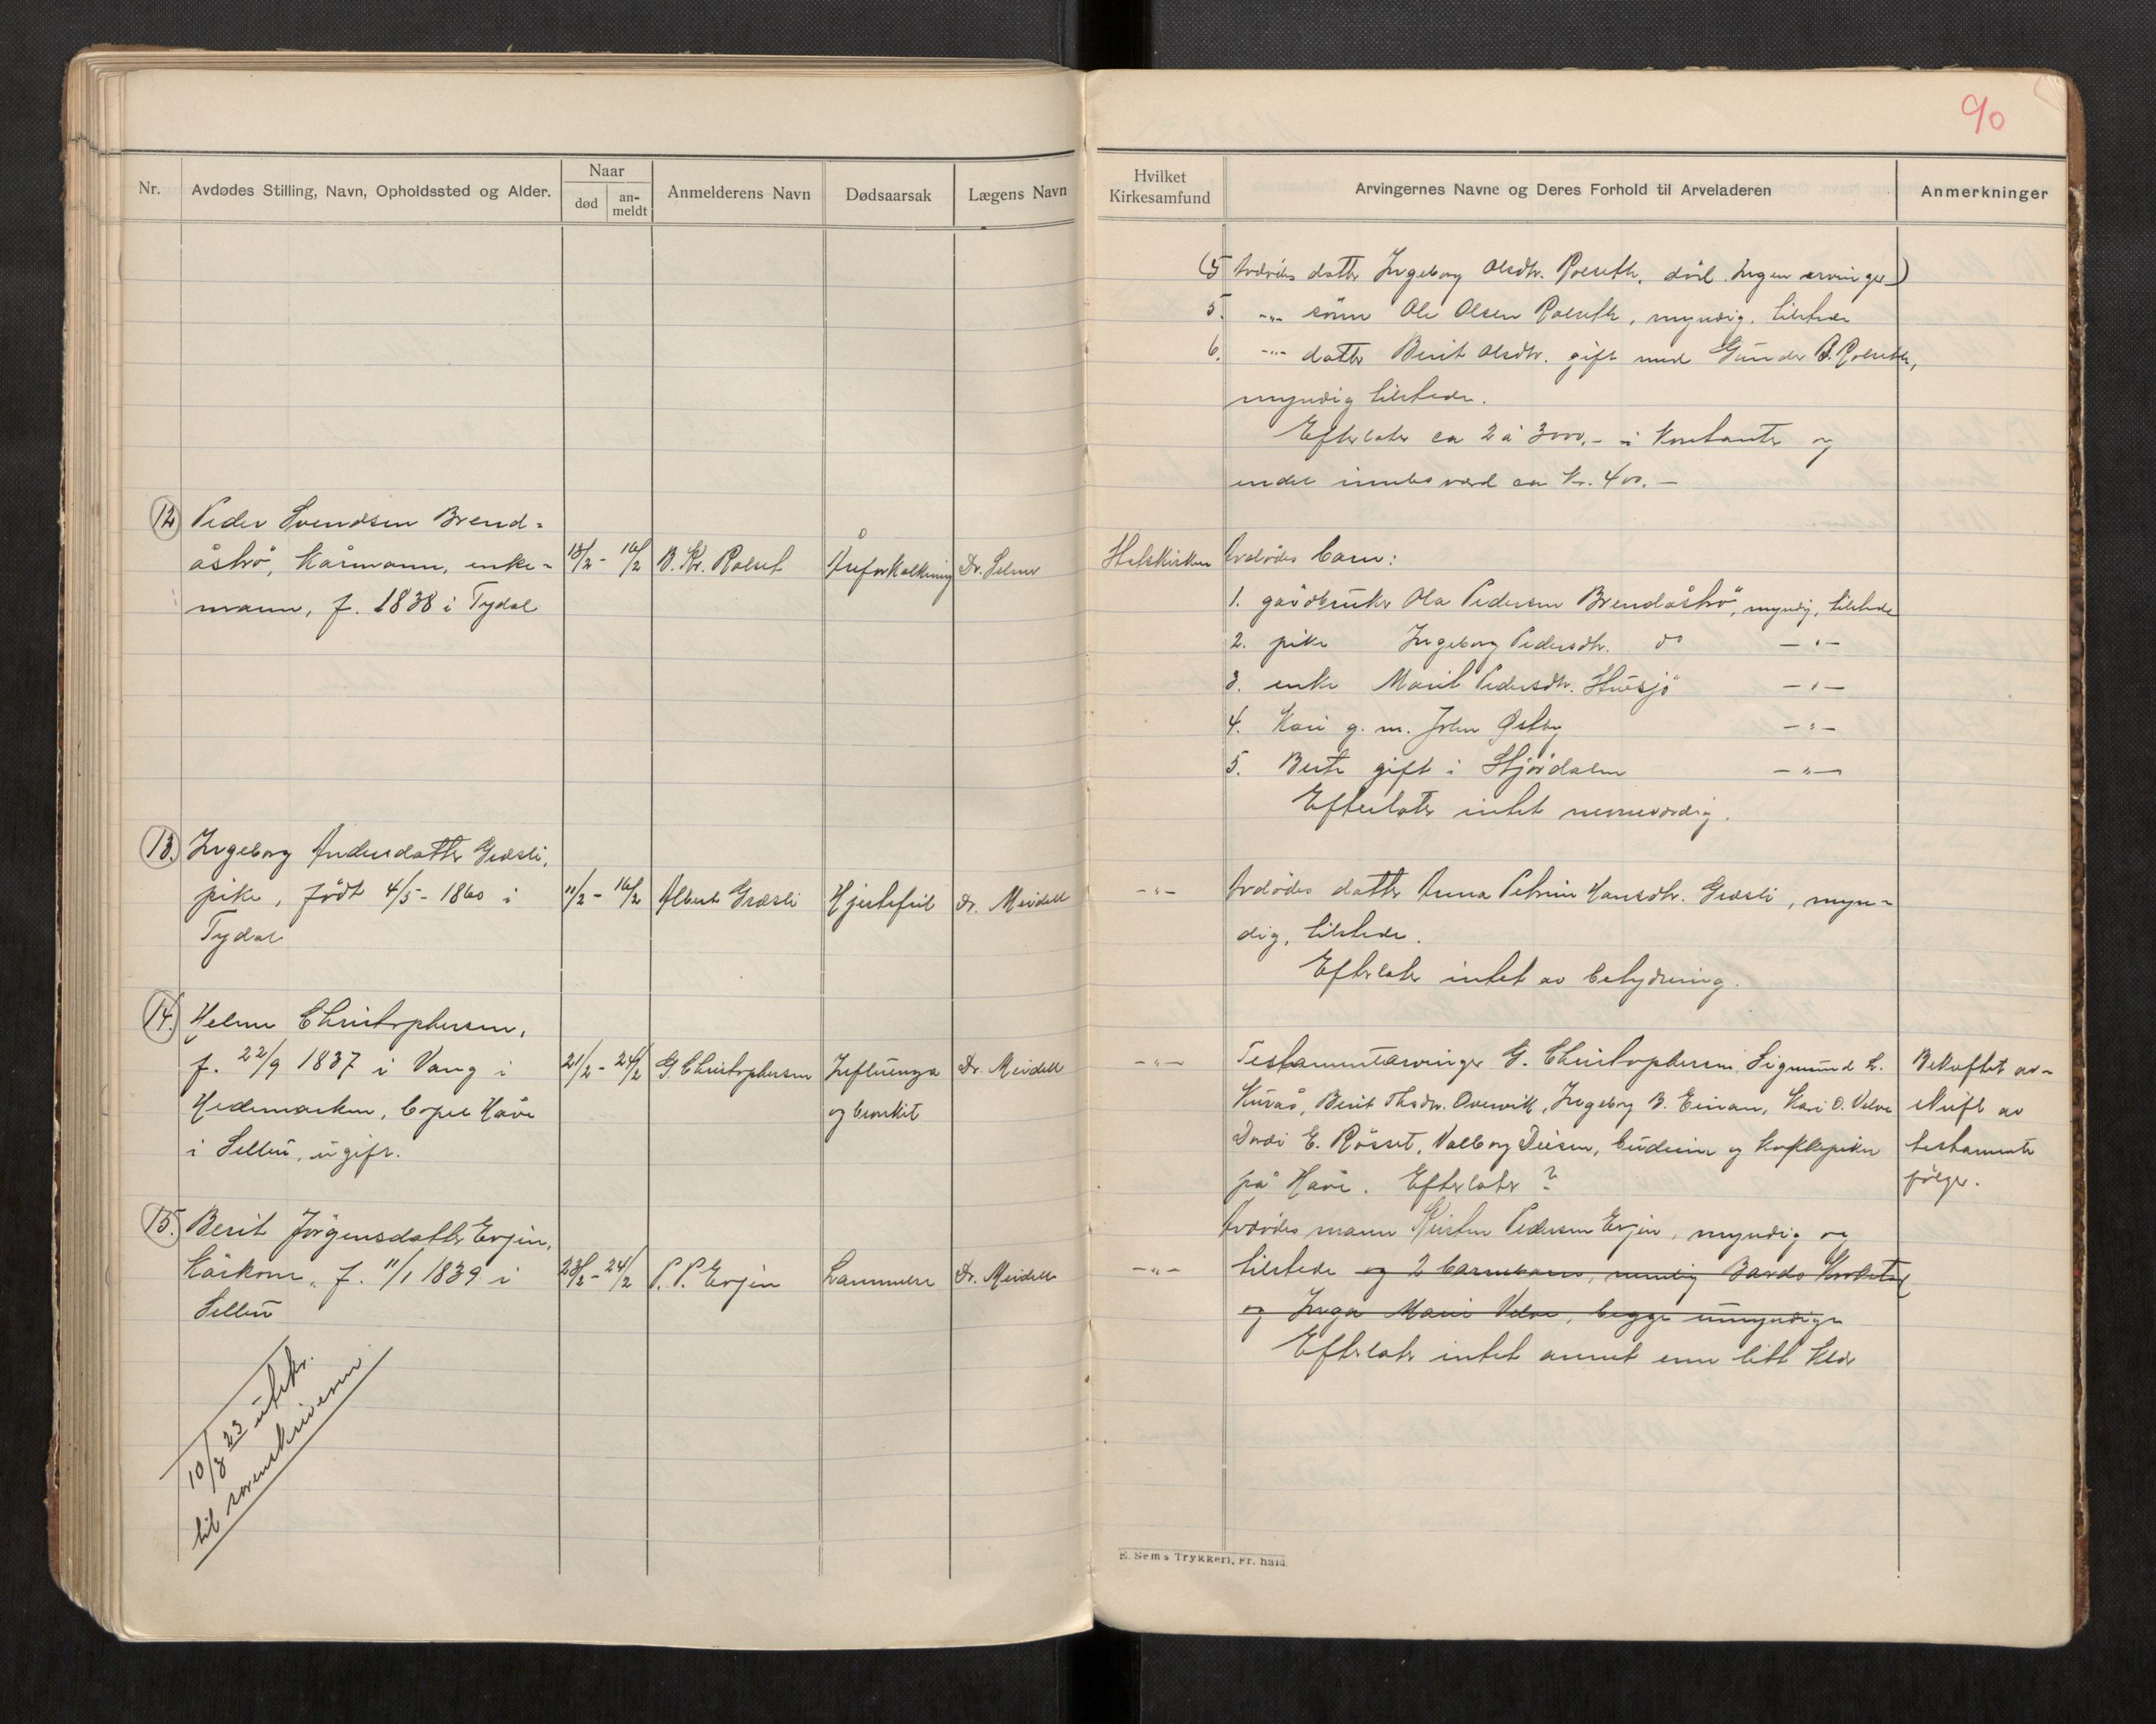 90
Nr.
Avdødes Stilling, Navn, Opholdssted og Alder.
Naar
død
an-
meldt
Anmelderens Navn
Dødsaarsak
Lægens Navn
Hvilket
Kirkesamfund
Arvingernes Navne og Deres Forhold til Arveladeren
Anmerkninger
(5 Avdødes datter Ingeborg Olsdtr. Rolseth, død. Ingen arvinger)
5. -„- sönn Ole Olsen Rolseth, myndig, tilstede
6. -„- datter Berit Olsdtr. gift med Gunder B. Rolseth,
myndig tilstede.
Efterlater ca 2 à 3000,- i Kontanter og
endel innbo værd ca Kr. 400.-
12 Peder Svendsen Brend-
åstrø, Kårmann, enke-
mann, f. 1838 i Tydal
13/2 - 16/2
B. Kr. Rolset
Åreforkalkning
Dr. Selmer
Statskirken
Avdødes barn:
1. gårdbruker Ola Pedersen Brendåstrø, myndig, tilstede
2. pike Ingeborg Pedersdtr. do -„-
3. enke Marit Pedersdtr. Stuesjö -„-
4. Kari g. m. John Østby -„-
5. Berte gift i Stjördalen -„-
Efterlater intet nevneværdig.
13. Ingeborg Andersdatter Græsli,
pike, født 4/5 - 1860 i
Tydal
11/2 - 16/2
Albert Græsli
Hjertefeil
Dr. Meidell
-„-
Avdødes datter Anna Petrine Hansdtr. Græsli, myn-
dig, tilstede.
Efterlater intet av betydning.
14. Helene Christophersen,
f. 22/9 1837 i Vang i
Hedemarken, bopel Håve
i Selbu, ugift.
21/2 - 24/2
G. Christophersen
Influenza
og bronkit
Dr. Meidell
-„-
Testamentarvinger G. Christophersen, Sigmund L.
Kuraas, Berit Thsdtr. Overvik, Ingeborg B. Eman, Kari O. Velve
Dordi E. Rösset, Valborg Deisen, budeien og kokkepiken
på Håve. Efterlater ?
Bekreftet av-
skrift av
testamente
følger.
15. Berit Jörgensdatter Evjen,
Kårkone, f. 11/1 1839 i
Selbu
23/2 - 24/2
P. P. Evjen
Lammelse
Dr. Meidell
-„-
Avdödes mann Kristen Pedersen Evjen, myndig og
tilstede og 2 barnebarn, nemlig Bardo Krokstad
og Inga Marie Velve, begge umyndige
Efterlater intet annet enn litt klær
10/3 23 utskr.
til sorenskriveren
E. Sems Trykkeri, Fr. hald